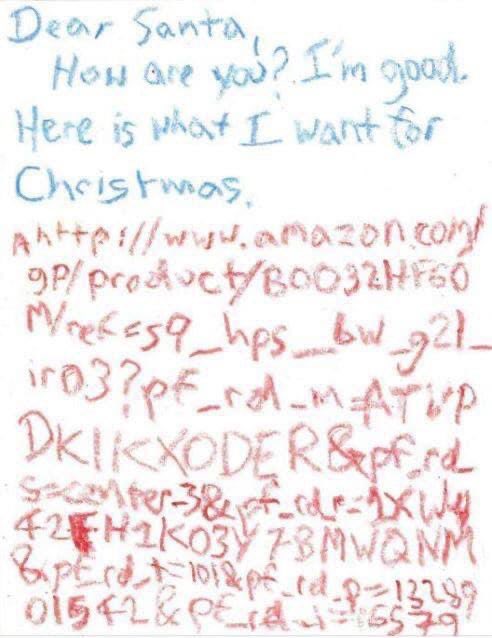 Dear Santa,
How are you? I'm good.
Here is what I want for
Christmas.
http://www.amazon.com/
gp/product/B0032HF60
M/ref=s9_hps_bw_g21_
ir03?pf_rd_m=ATVP
DKIKX0DER&pf_rd_
s=center-3&pf_rd_r=1XWY
42FH1K03Y7BMWQNM
&pf_rd_t=101&pf_rd_p=13289
01542&pf_rd_i=16579